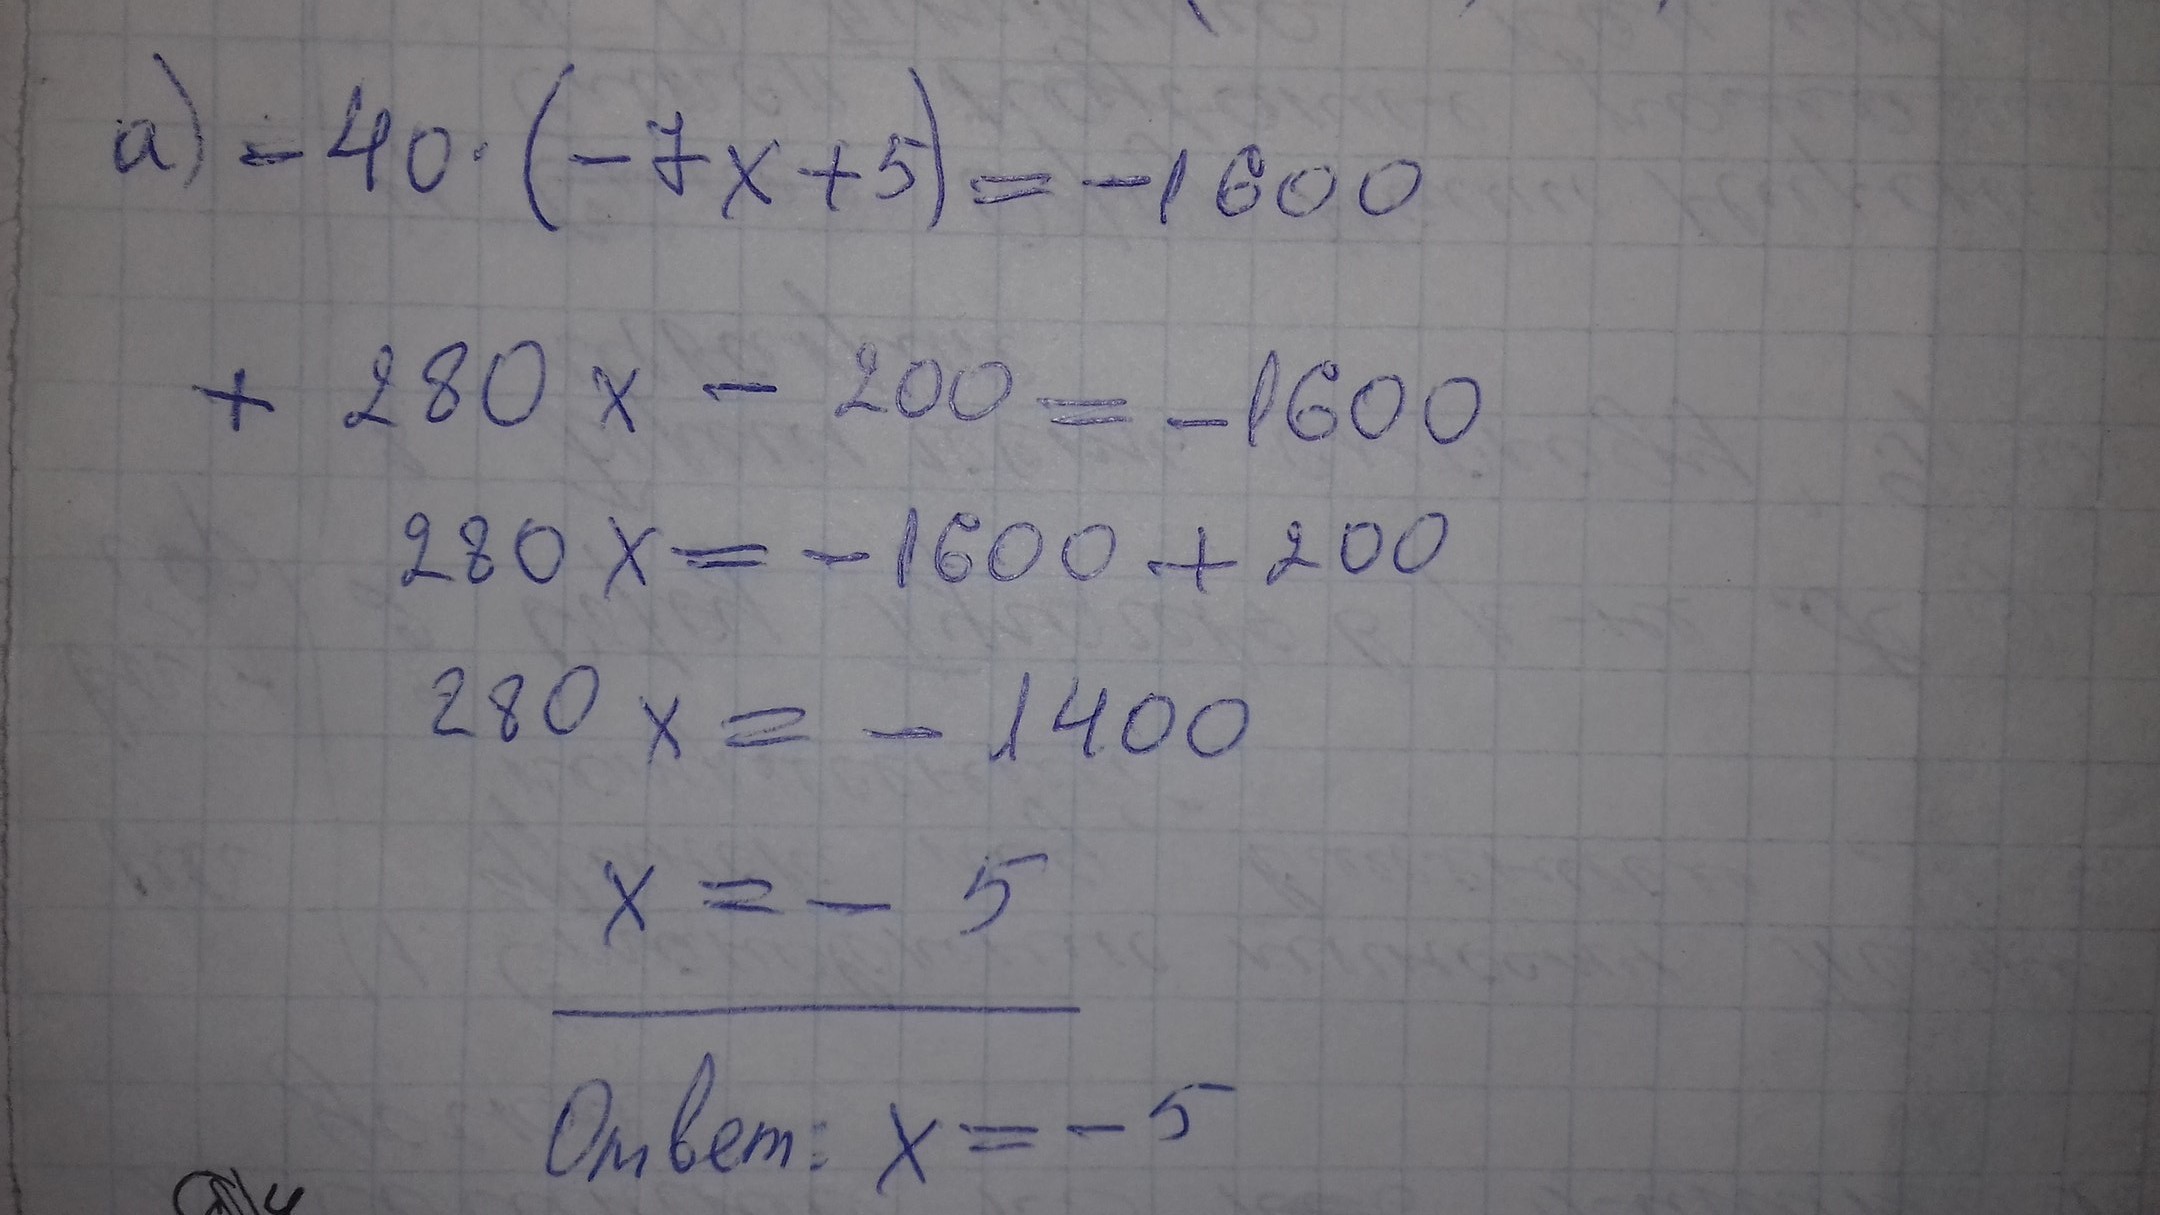 а) -40·(-7x+5)=-1600
+ 280x - 200=-1600
280x=-1600+200
280x=-1400
x=-5
Ответ: x=-5